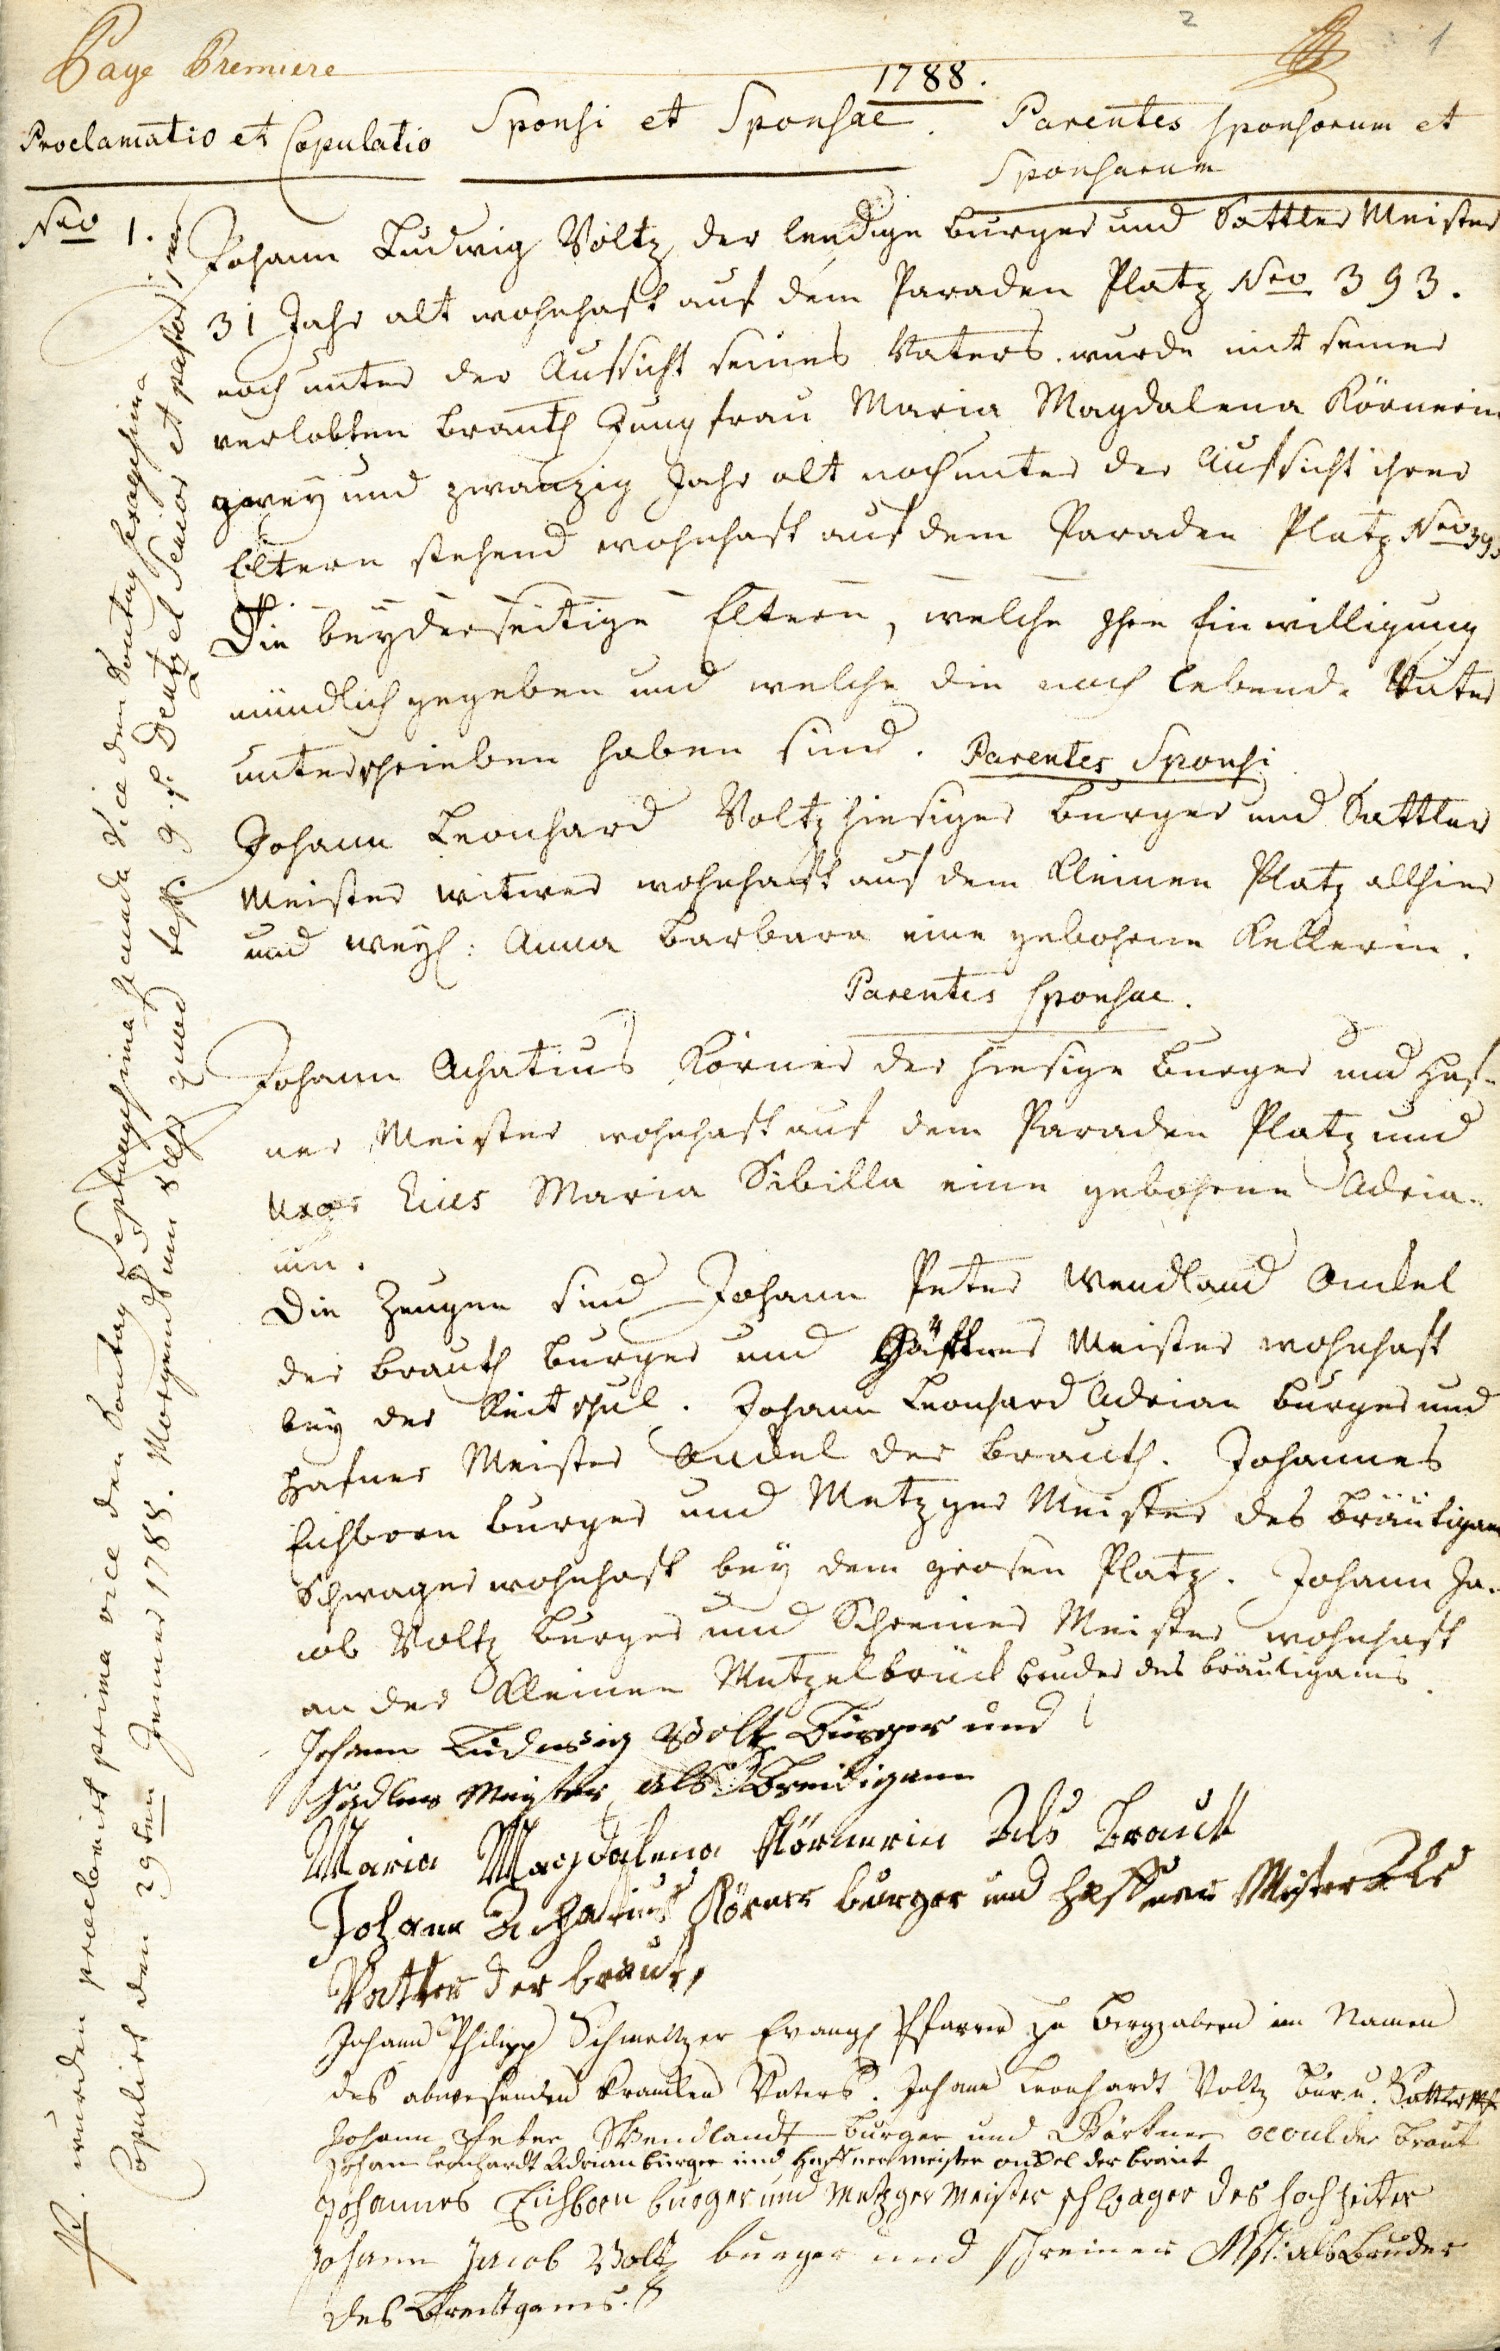 Page Premiere
2
1
1788.
Proclamatio et Copulatio
Sponsi et Sponsae.
Parentes sponsorum et
Sponsarum
Nro 1.
Johann Ludwig Voltz der leedige burger und Sattler Meister
31 Jahr alt wohnhaft auf dem Paraden Platz Nro 393.
noch unter der Aufsicht seines Vaters. wurde mit seiner
verlobten brauth Jungfrau Maria Magdalena Körnerin
zwey und zwanzig Jahr alt noch unter der Aufsicht ihrer
Eltern stehend wohnhaft auf dem Paraden Platz Nro
Die beyderseitige Eltern, welche Ihre Einwilligung
mündlich gegeben und welche die noch lebende Väter
unterschrieben haben sind. Parentes Sponsi
Johann Leonhard Voltz hiesiger burger und Sattler
Meister witwer wohnhaft auf dem kleinen Platz allhier
und weyl: Anna barbara eine gebohrne Kellerin.
Parentes sponsae.
Johann Achatius Körner der hiesige burger und Haf-
ner Meister wohnhaft auf dem Paraden Platz und
uxor Eius Maria Sibilla eine gebohrne Adria-
nin.
Die Zeugen sind Johann Peter Wendland Onckel
der brauth burger und Gärtner Meister wohnhaft
bey der Reitschul. Johann Leonhard Adrian burger und
Hafner Meister Onckel der brauth. Johannes
Eichborn burger und Metzger Meister des bräutigams
Schwager wohnhaft bey dem grosen Platz. Johann Ja-
cob Voltz burger und Schreiner Meister wohnhaft
an der kleinen Metzelbrück bruder des bräutigams.
Johann Ludwig Voltz Burger und
Sadler Meyster als Breidigam
Maria Magdalena Körnerin Als Braut
Johann Achatius Körner burger und Haffner Meister Als
Vatter der braut,
Johann Philipp Schmeltzer Evangl Pfarrer zu Bergzabern im Namen
des abwesenden krancken Vaters. Johann Leonhardt Voltz Bur. u. Sattler
Johann Peter Wendlandt burger und Gärtner der Braut
Johan Leonhardt Adrian burger und Haffner meister onckel der braut
Johannes Eichborn burger und Metzger Meister schwager des hochzeiter
Johann Jacob Voltz burger und schreiner Mstr: als Bruder
des Breittgams.
wurden proclamirt prima vice den Sontag Septuagesima secunda vice den Sontag Sexagesima
Copulirt den 29ten Jenner 1788. Morgends um quod test. Deutzel Senior et pastor